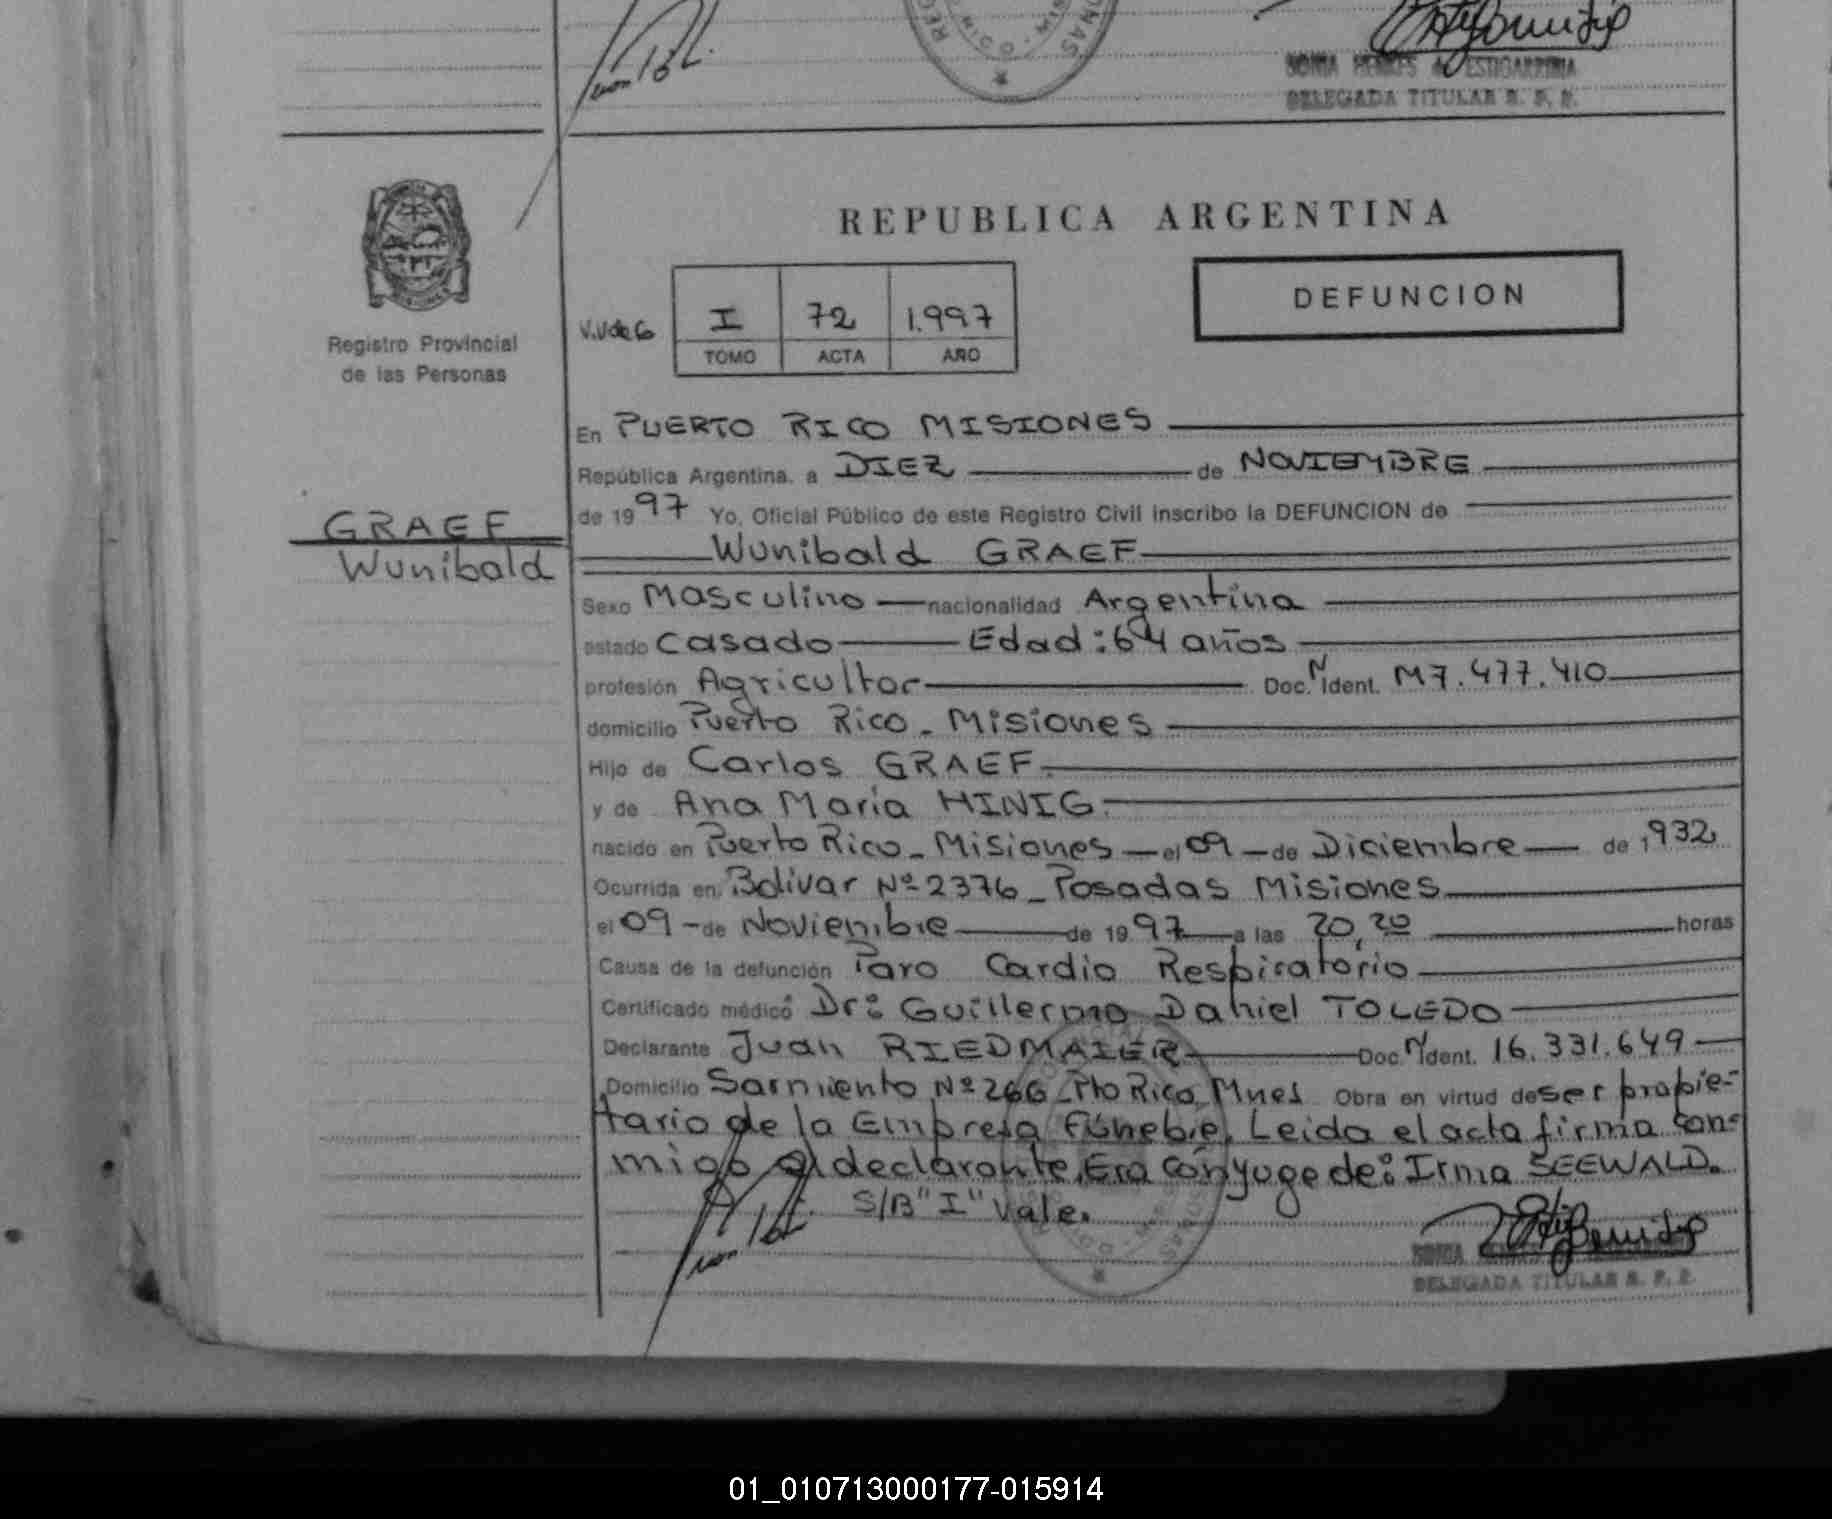 DELEGADA TITULAR R. P. P.
REPUBLICA ARGENTINA
DEFUNCION
I 72 1.997
V.Vde G
TOMO ACTA AÑO
Registro Provincial
de las Personas
En PUERTO RICO MISIONES
República Argentina, a DIEZ de NOVIEMBRE
de 1997 Yo, Oficial Público de este Registro Civil inscribo la DEFUNCION de
GRAEF
Wunibald
Wunibald GRAEF
Sexo Masculino nacionalidad Argentina
estado Casado Edad: 64 años
profesión Agricultor Doc. N Ident. M7.477.410
domicilio Puerto Rico - Misiones
Hijo de Carlos GRAEF.
y de Ana María HINIG.
nacido en Puerto Rico - Misiones el 09 de Diciembre de 1932
Ocurrida en Bolivar Nº 2376 - Posadas Misiones
el 09 de Noviembre de 1997 a las 20,20 horas
Causa de la defunción Paro Cardio Respiratorio
Certificado médico Dr: Guillermo Daniel TOLEDO
Declarante Juan RIEDMAIER Doc. N Ident. 16.331.649
Domicilio Sarmiento Nº 266 - Pto Rico Mnes Obra en virtud de ser propie-
tario de la Empresa Fúnebre. Leida el acta firma con-
migo el declarante. Era cónyuge de: Irma SEEWALD.
S/B "I" Vale.
DELEGADA TITULAR R. P. P.
01_010713000177-015914